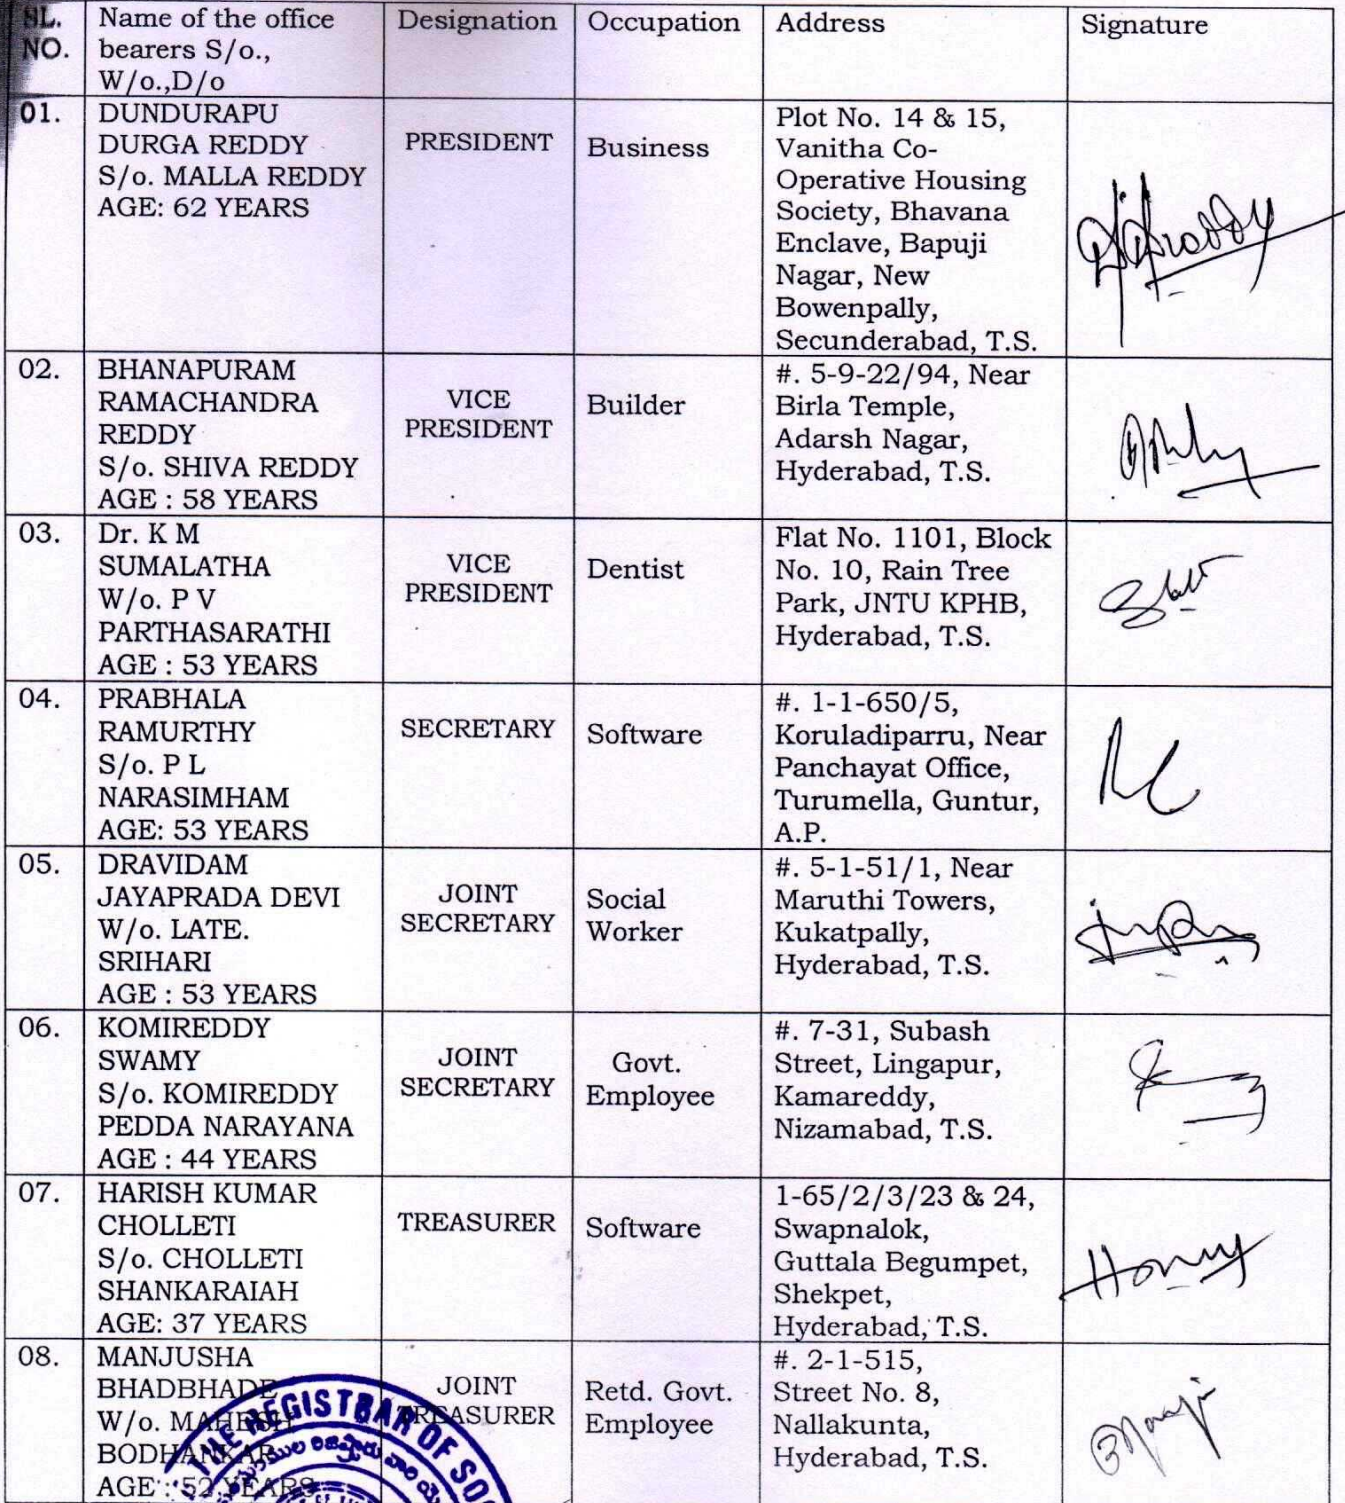 SL. NO. Name of the office bearers S/o., W/o.,D/o Designation Occupation Address Signature
01.
DUNDURAPU
DURGA REDDY
S/o. MALLA REDDY
AGE: 62 YEARS
PRESIDENT
Business
Plot No. 14 & 15,
Vanitha Co-
Operative Housing
Society, Bhavana
Enclave, Bapuji
Nagar, New
Bowenpally,
Secunderabad, T.S.
02.
BHANAPURAM
RAMACHANDRA
REDDY
S/o. SHIVA REDDY
AGE : 58 YEARS
VICE
PRESIDENT
Builder
#. 5-9-22/94, Near
Birla Temple,
Adarsh Nagar,
Hyderabad, T.S.
03.
Dr. K M
SUMALATHA
W/o. P V
PARTHASARATHI
AGE : 53 YEARS
VICE
PRESIDENT
Dentist
Flat No. 1101, Block
No. 10, Rain Tree
Park, JNTU KPHB,
Hyderabad, T.S.
04.
PRABHALA
RAMURTHY
S/o. P L
NARASIMHAM
AGE: 53 YEARS
SECRETARY
Software
#. 1-1-650/5,
Koruladiparru, Near
Panchayat Office,
Turumella, Guntur,
A.P.
05.
DRAVIDAM
JAYAPRADA DEVI
W/o. LATE.
SRIHARI
AGE : 53 YEARS
JOINT
SECRETARY
Social
Worker
#. 5-1-51/1, Near
Maruthi Towers,
Kukatpally,
Hyderabad, T.S.
06.
KOMIREDDY
SWAMY
S/o. KOMIREDDY
PEDDA NARAYANA
AGE : 44 YEARS
JOINT
SECRETARY
Govt.
Employee
#. 7-31, Subash
Street, Lingapur,
Kamareddy,
Nizamabad, T.S.
07.
HARISH KUMAR
CHOLLETI
S/o. CHOLLETI
SHANKARAIAH
AGE: 37 YEARS
TREASURER
Software
1-65/2/3/23 & 24,
Swapnalok,
Guttala Begumpet,
Shekpet,
Hyderabad, T.S.
08.
MANJUSHA
BHADBHADE
W/o. MAHESH
BODHANKAR
AGE : 52 YEARS
JOINT
TREASURER
Retd. Govt.
Employee
#. 2-1-515,
Street No. 8,
Nallakunta,
Hyderabad, T.S.
THE REGISTRAR OF SOC